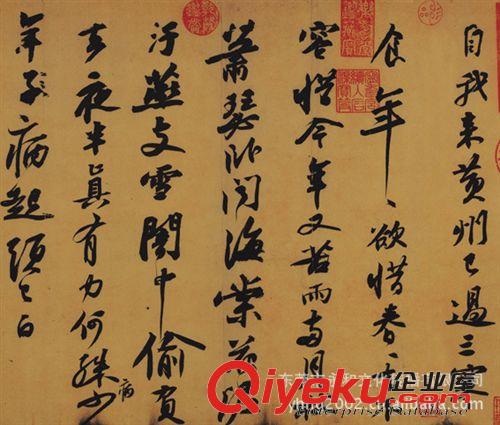 自我来黄州已過三寒
食年〻欲惜春〻去不
容惜今年又苦雨兩月秋
蕭瑟卧聞海棠花泥
汙燕支雪闇中偷負
去夜半真有力何殊少
病
年子病起頭已白
Qiyeku.com 企业库
Enterprise Database